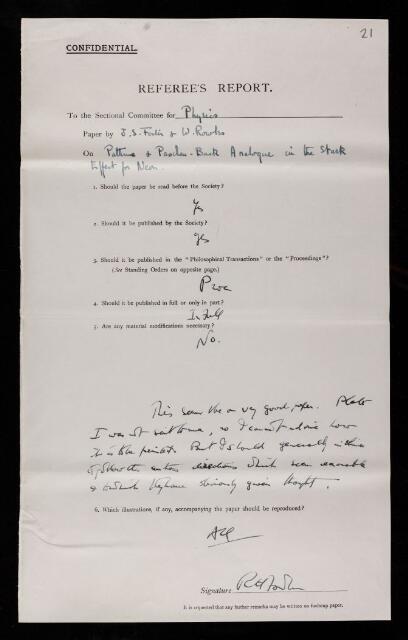 21
CONFIDENTIAL.
REFEREE'S REPORT.
To the Sectional Committee for Physics
Paper by J. S. Foster & W. Rowles
On Patterns & Paschen-Back Analogue in the Stark
Effect for Neon.
1. Should the paper be read before the Society?
Yes
2. Should it be published by the Society?
Yes
3. Should it be published in the "Philosophical Transactions" or the "Proceedings"?
(See Standing Orders on opposite page.)
Proc
4. Should it be published in full or only in part?
In full
5. Are any material modifications necessary?
No.
This seems to be a very good paper. Plates
I was not sent, so I cannot advise how
to be printed. But I should generally
the authors which seem reasonable
& to which they have obviously given thought.
6. Which illustrations, if any, accompanying the paper should be reproduced?
All
Signature R H Fowler
It is requested that any further remarks may be written on foolscap paper.